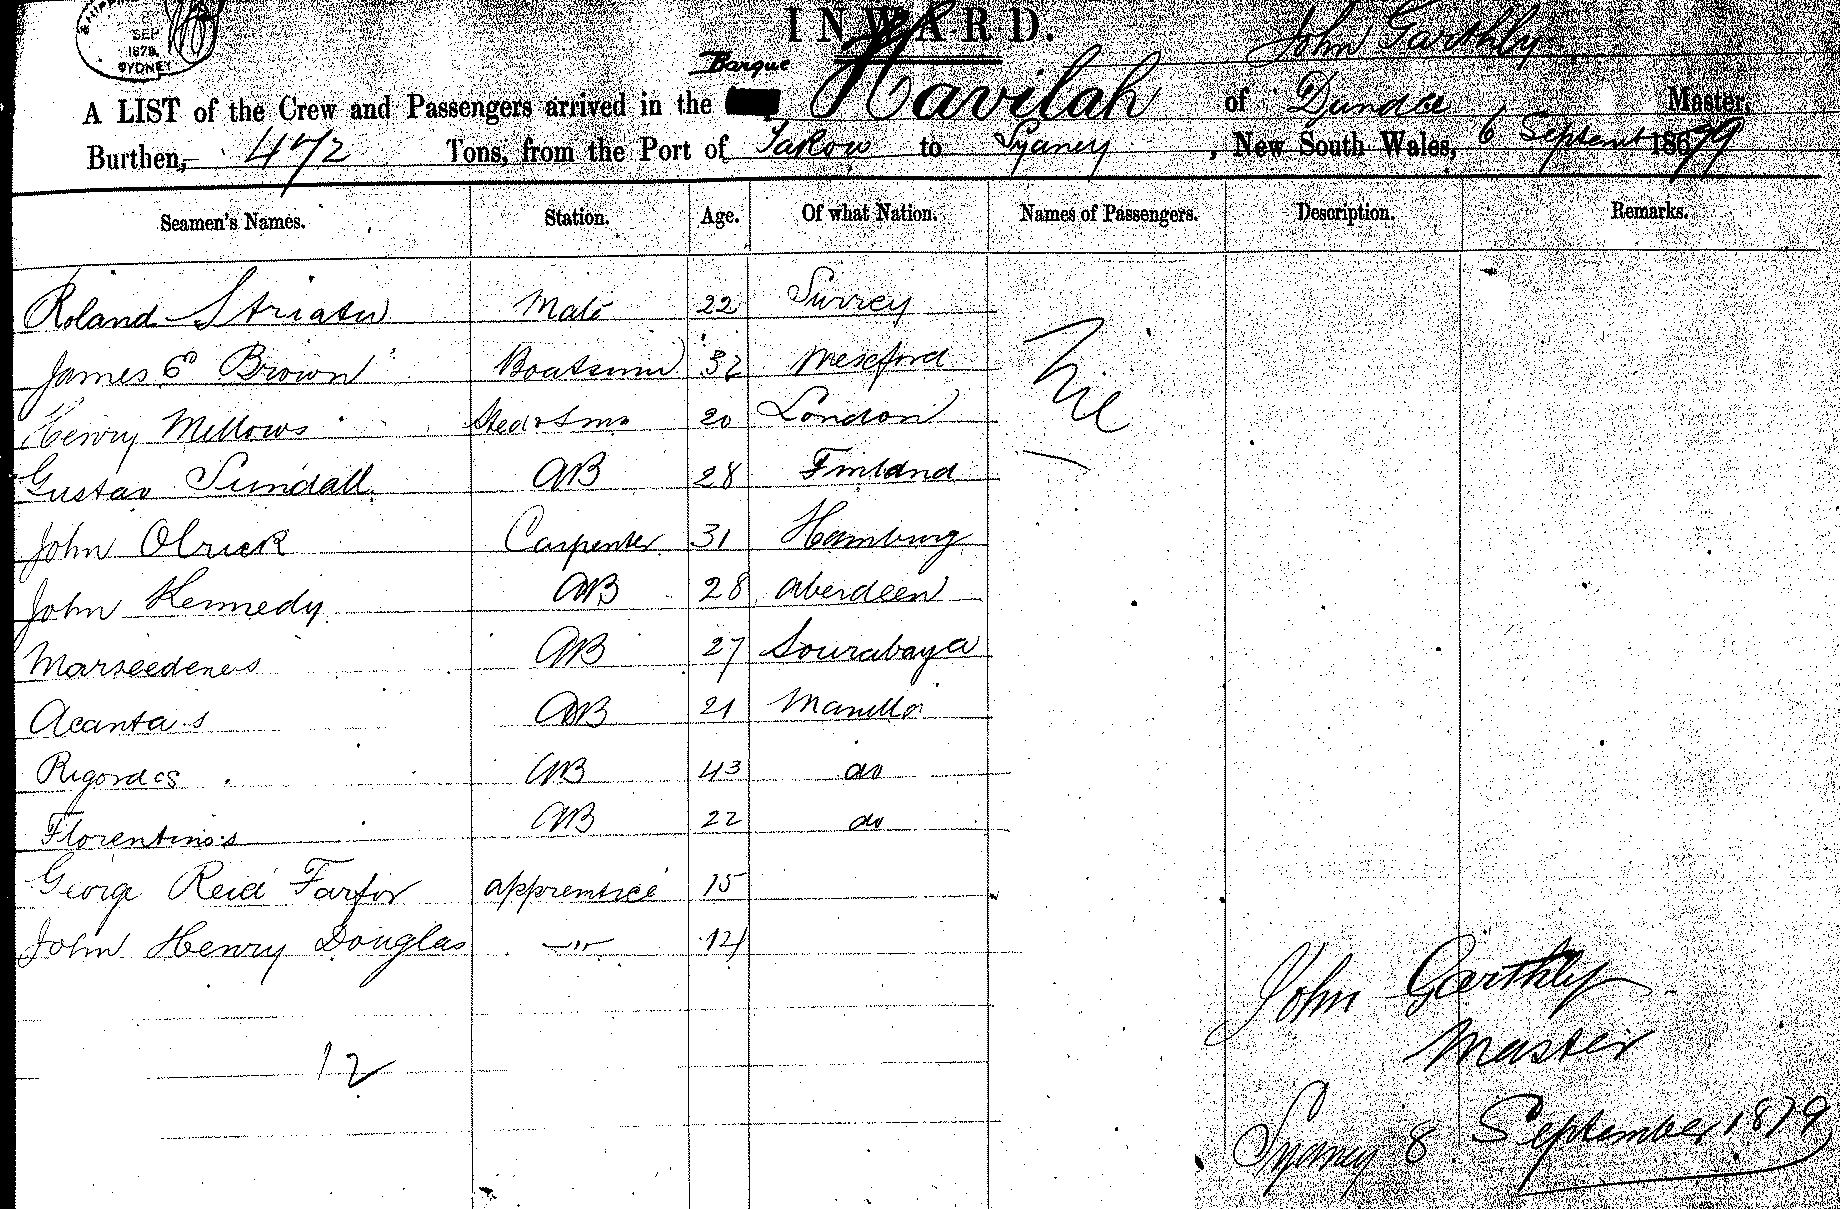 SEP
1879
SYDNEY
INWARD.
John Garthly
Barque
A LIST of the Crew and Passengers arrived in the Havilah of Dundee Master,
Burthen, 472 Tons, from the Port of to Sydney, New South Wales, 6 Septemr 1879
Seamen's Names. Station. Age. Of what Nation. Names of Passengers. Description. Remarks.
Roland Mate 22 Surrey
James E Brown Boatsman 32 Wexford Nil
Henry Mellows 20 London
Gustav Sundall AB 28 Finland
John Olrick Carpenter 31 Hamburg
John Kennedy AB 28 Aberdeen
Marseedenes AB 27 Sourabaya
Acantas AB 21 Manilla
Rigordes AB 43 do
Florentinos AB 22 do
George Reid Farfor apprentice 15
John Henry Douglas —"—
John Garthly
Master
12
Sydney 8 September 1879